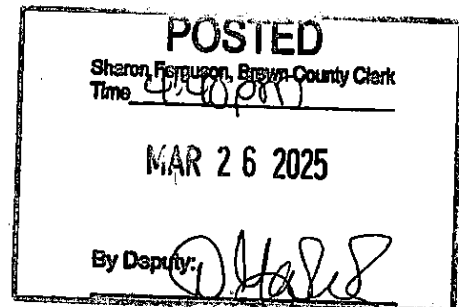 POSTED
Sharon Ferguson, Brown County Clerk
Time 4:40pm
MAR 26 2025
By Deputy: